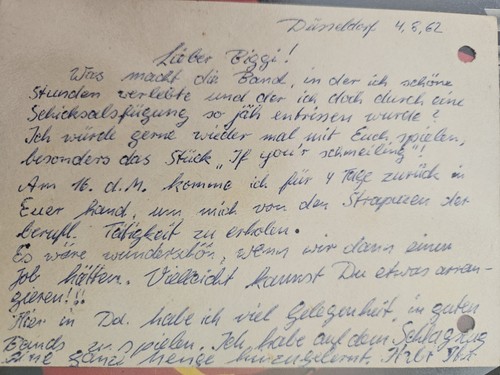 Düsseldorf 4.8.62
Lieber Biggi!
Was macht die Band, in der ich schöne
Stunden verlebte und der ich doch durch eine
Schicksalsfügung so jäh entrissen wurde?
Ich würde gerne wieder mal mit Euch spielen,
besonders das Stück „If you'r schmeiling"!
Am 16. d.M. komme ich für 4 Tage zurück in
Euer Land, um mich von den Strapazen der
berufl. Tätigkeit zu erholen.
Es wäre wunderschön, wenn wir dann einen
Job hätten. Vielleicht kannst Du etwas arran-
gieren!!!
Hier in Dd. habe ich viel Gelegenheit, in guten
Bands zu spielen. Ich habe auf dem Schlagzug
eine ganze Menge hinzugelernt.